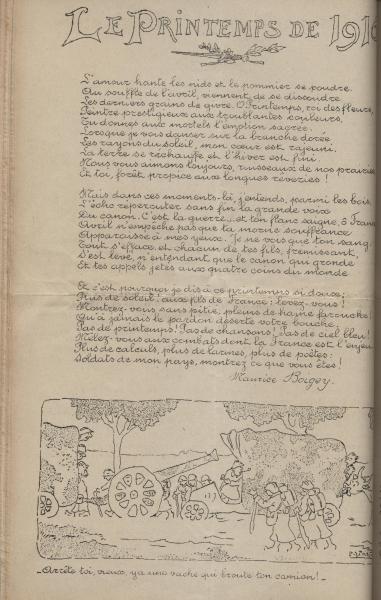 LE PRINTEMPS DE 1916
L'amour hante les nids et le pommier se poudre.
Au souffle de l'avril, viennent de se dissoudre
Les derniers grains de givre. O Printemps, roi des fleurs,
Peintre prestigieux aux troublantes couleurs,
Tu donnes aux mortels l'émotion sacrée.
Lorsque je vois danser sur la branche dorée
Les rayons du soleil, mon cœur est rajeuni,
La terre se réchauffe et l'hiver est fini.
Nous vous aimons toujours, ruisseaux de nos prairies
Et toi, forêt, propice aux longues rêveries!
Mais dans ces moments-là, j'entends, parmi les bois,
L'écho répercuter sans fin la grande voix
Du canon. C'est la guerre... et ton flanc saigne, ô France
Avril n'empêche pas que ta morne souffrance
Apparaisse à mes yeux. Je ne vois que ton sang.
Tout s'efface et chacun de tes fils, frémissant,
S'est levé, n'entendant que le canon qui gronde
Et tes appels jetés aux quatre coins du monde
Et c'est pourquoi je dis à ce printemps si doux:
Plus de soleil! aux fils de France: levez-vous!
Montrez-vous sans pitié, pleins de haine farouche!
Qu'à jamais le pardon déserte votre bouche.
Pas de printemps! Pas de chansons! Pas de ciel bleu!
Mêlez-vous aux combats dont la France est l'enjeu
Plus de calculs, plus de larmes, plus de poètes:
Soldats de mon pays, montrez ce que vous êtes!
Maurice Boigey.
_ Arrête toi, vieux, ya une vache qui broute ton camion! _